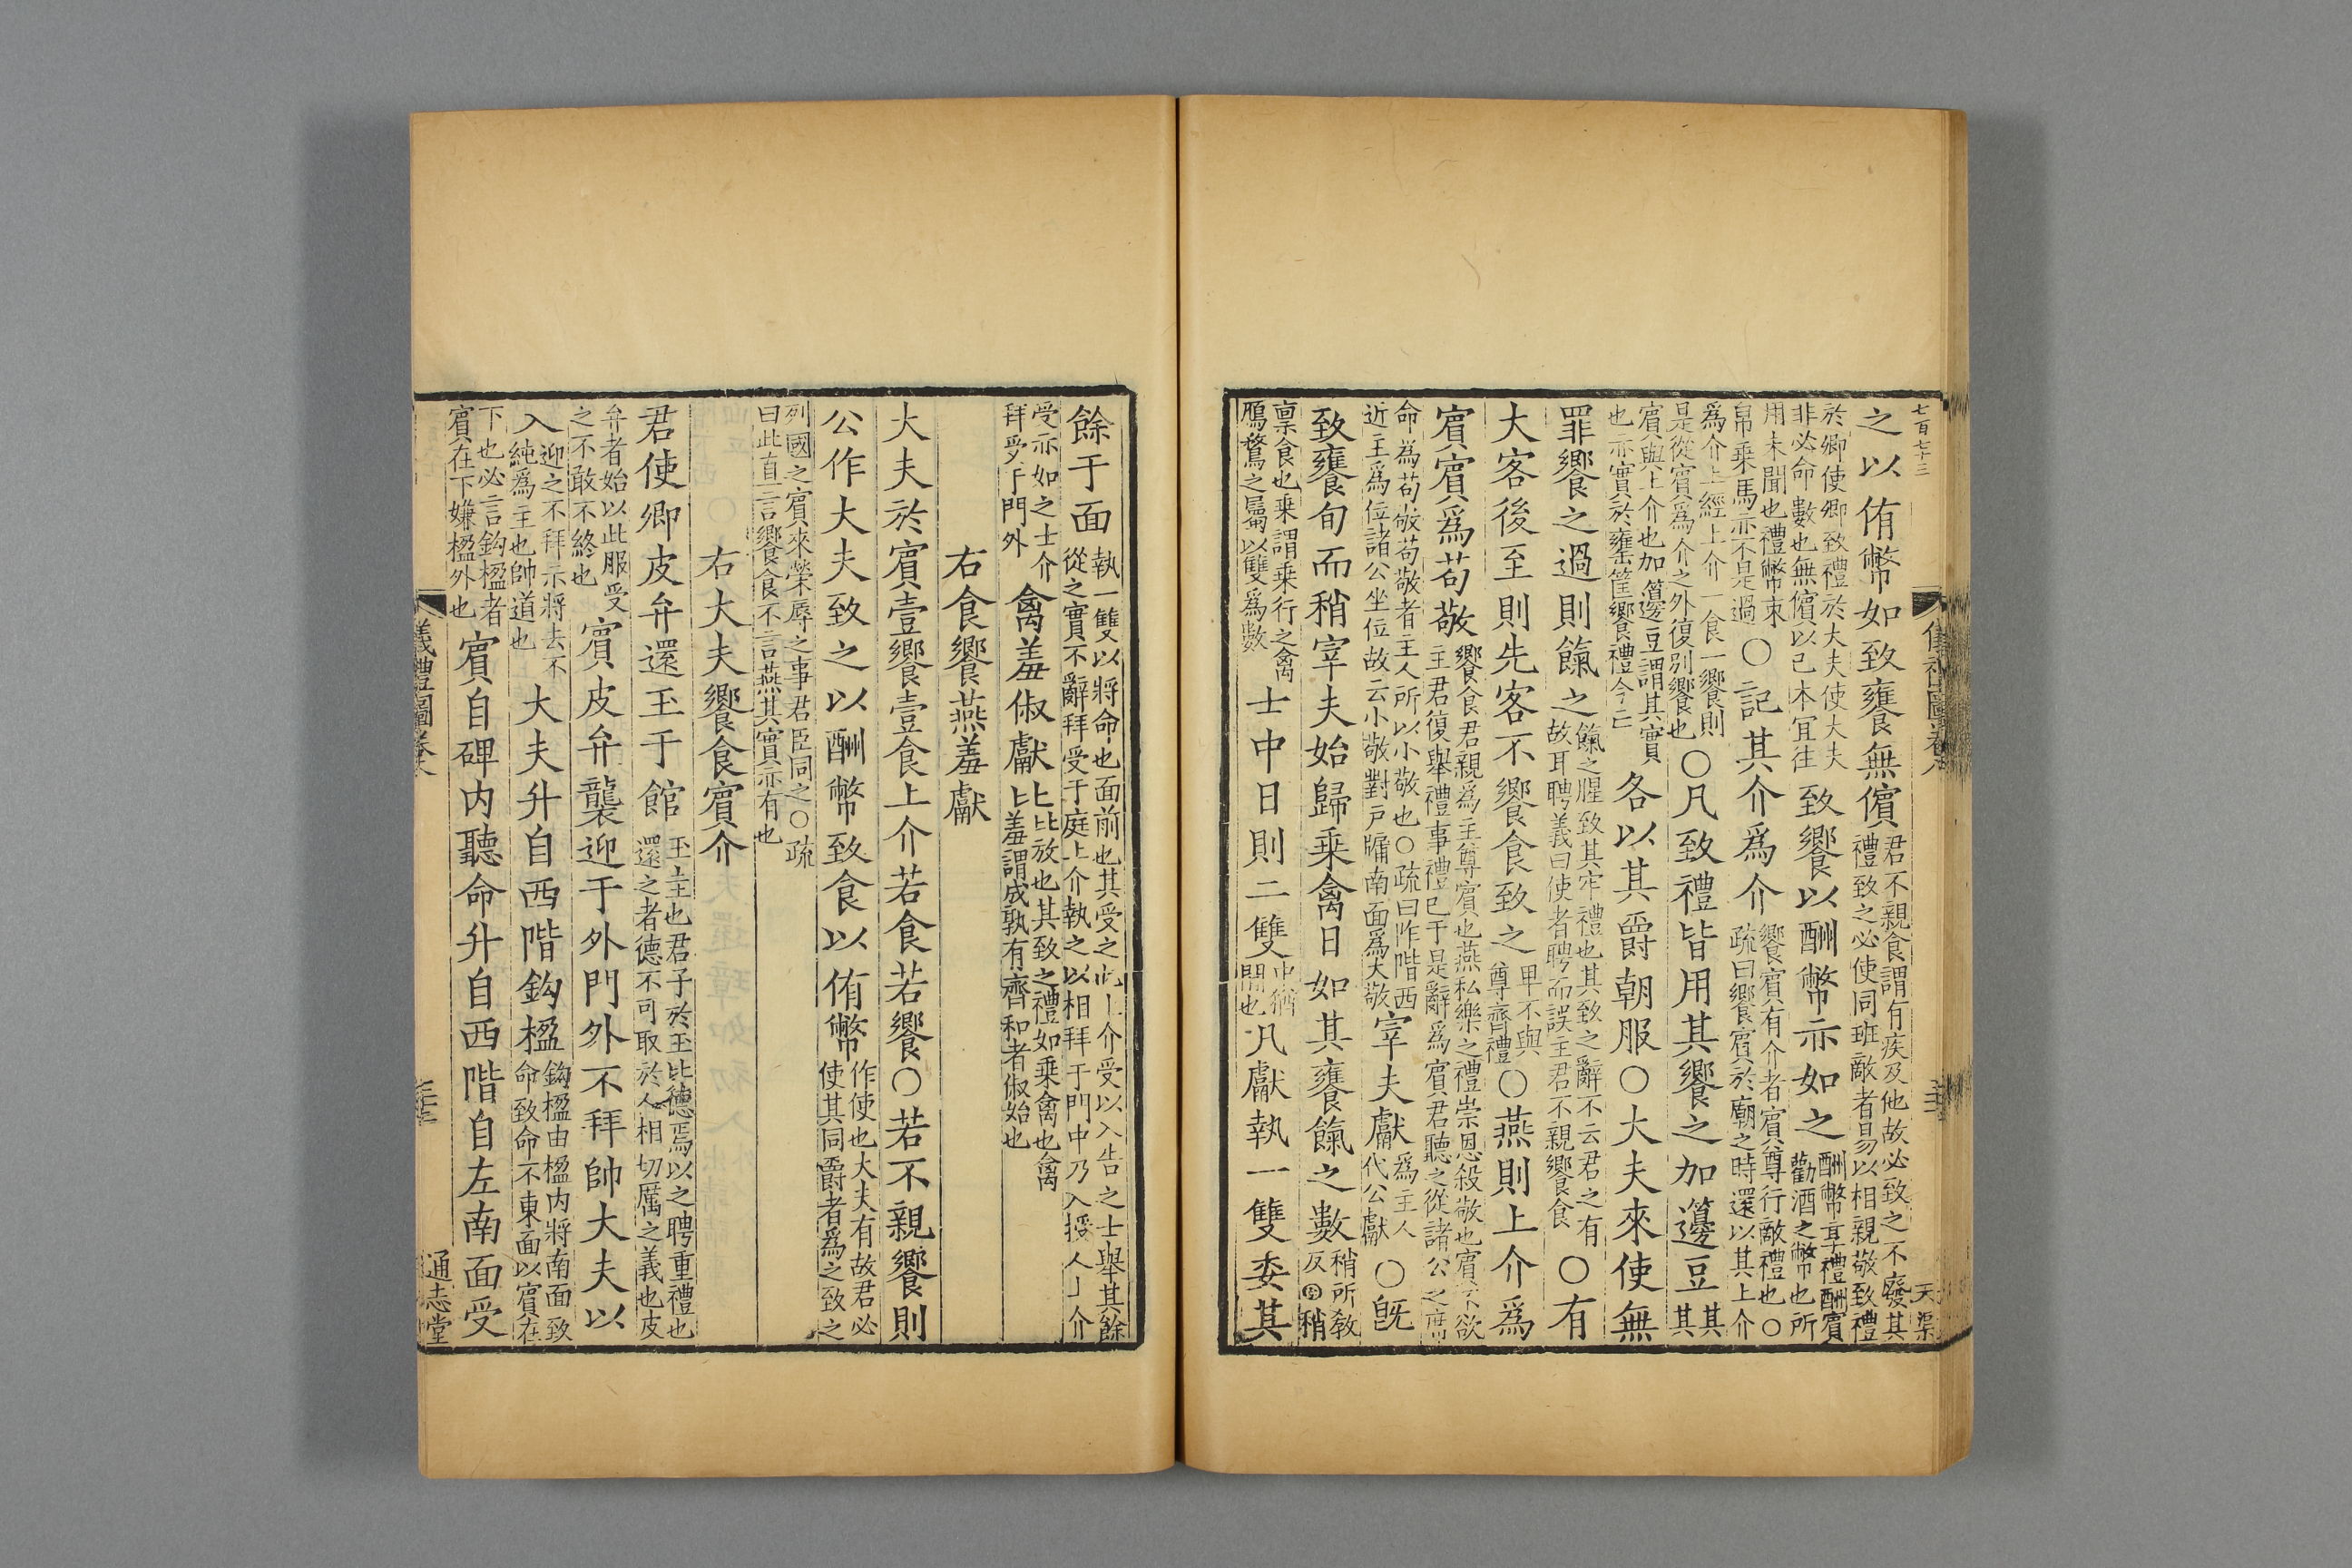 七百七十三
儀禮圖卷八
天渠
之以侑幣如致饔無儐君不親食謂有疾及他故必致之不廢其禮致之必使同班敵者易以相親敬致禮
於卿使卿致禮於大夫使大夫非必命數也無儐以已本宜往致饗以酬幣亦如之酬幣享禮酬賓勸酒之幣也所
用未聞也禮幣束帛乗馬亦不是過○記其介爲介饗賓有介者賓尊行敵禮也○疏曰饗賓於廟之時還以其上介
爲介上經上介一食一饗則是從賓爲介之外復別饗也○凡致禮皆用其饗之加籩豆其其
賓與上介也加籩豆謂其實也亦實於罋筐饗禮今亡各以其爵朝服○大夫來使無
罪饗之過則餼之餼之腥致其牢禮也其致之辭不云君之有故耳聘義曰使者聘而誤主君不親饗食○有
大客後至則先客不饗食致之卑不與尊齊禮○燕則上介爲
賓賓爲苟敬饗食君親爲主尊賓也燕私樂之禮崇恩殺敬也賓不欲主君復舉禮事禮已于是辭爲賓君聽之從諸公之席
命爲苟敬苟敬者主人所以小敬也○疏曰阼階西近主爲位諸公坐位故云小敬對戶牖南面爲大敬宰夫獻爲主人代公獻○旣
致饔旬而稍宰夫始歸乗禽日如其饔餼之數稍所敎反○稍
稟食也乗謂乗行之禽鴈鶩之屬以雙爲數士中日則二雙中猶閒也凡獻執一雙委其
餘于面執一雙以將命也面前也其受之此上介受以入告之士舉其餘從之賓不辭拜受于庭上介執之以相拜于門中乃入授人上介
受亦如之士介拜受于門外禽羞俶獻比比放也其致之禮如乗禽也禽羞謂成孰有齊和者俶始也
右食饗燕羞獻
大夫於賓壹饗壹食上介若食若饗○若不親饗則
公作大夫致之以酬幣致食以侑幣作使也大夫有故君必使其同爵者爲之致之
列國之賓來榮辱之事君臣同之○疏曰此直言饗食不言燕其實亦有也
右大夫饗食賓介
君使卿皮弁還玉于館玉圭也君子於玉比德焉以之聘重禮也還之者德不可取於人相切厲之義也皮
弁者始以此服受之不敢不終也賓皮弁襲迎于外門外不拜帥大夫以
入迎之不拜示將去不純爲主也帥道也大夫升自西階鉤楹鉤楹由楹內將南面致命致命不東面以賓在
下也必言鉤楹者賓在下嫌楹外也賓自碑内聽命升自西階自左南面受
儀禮圖卷八
通志堂